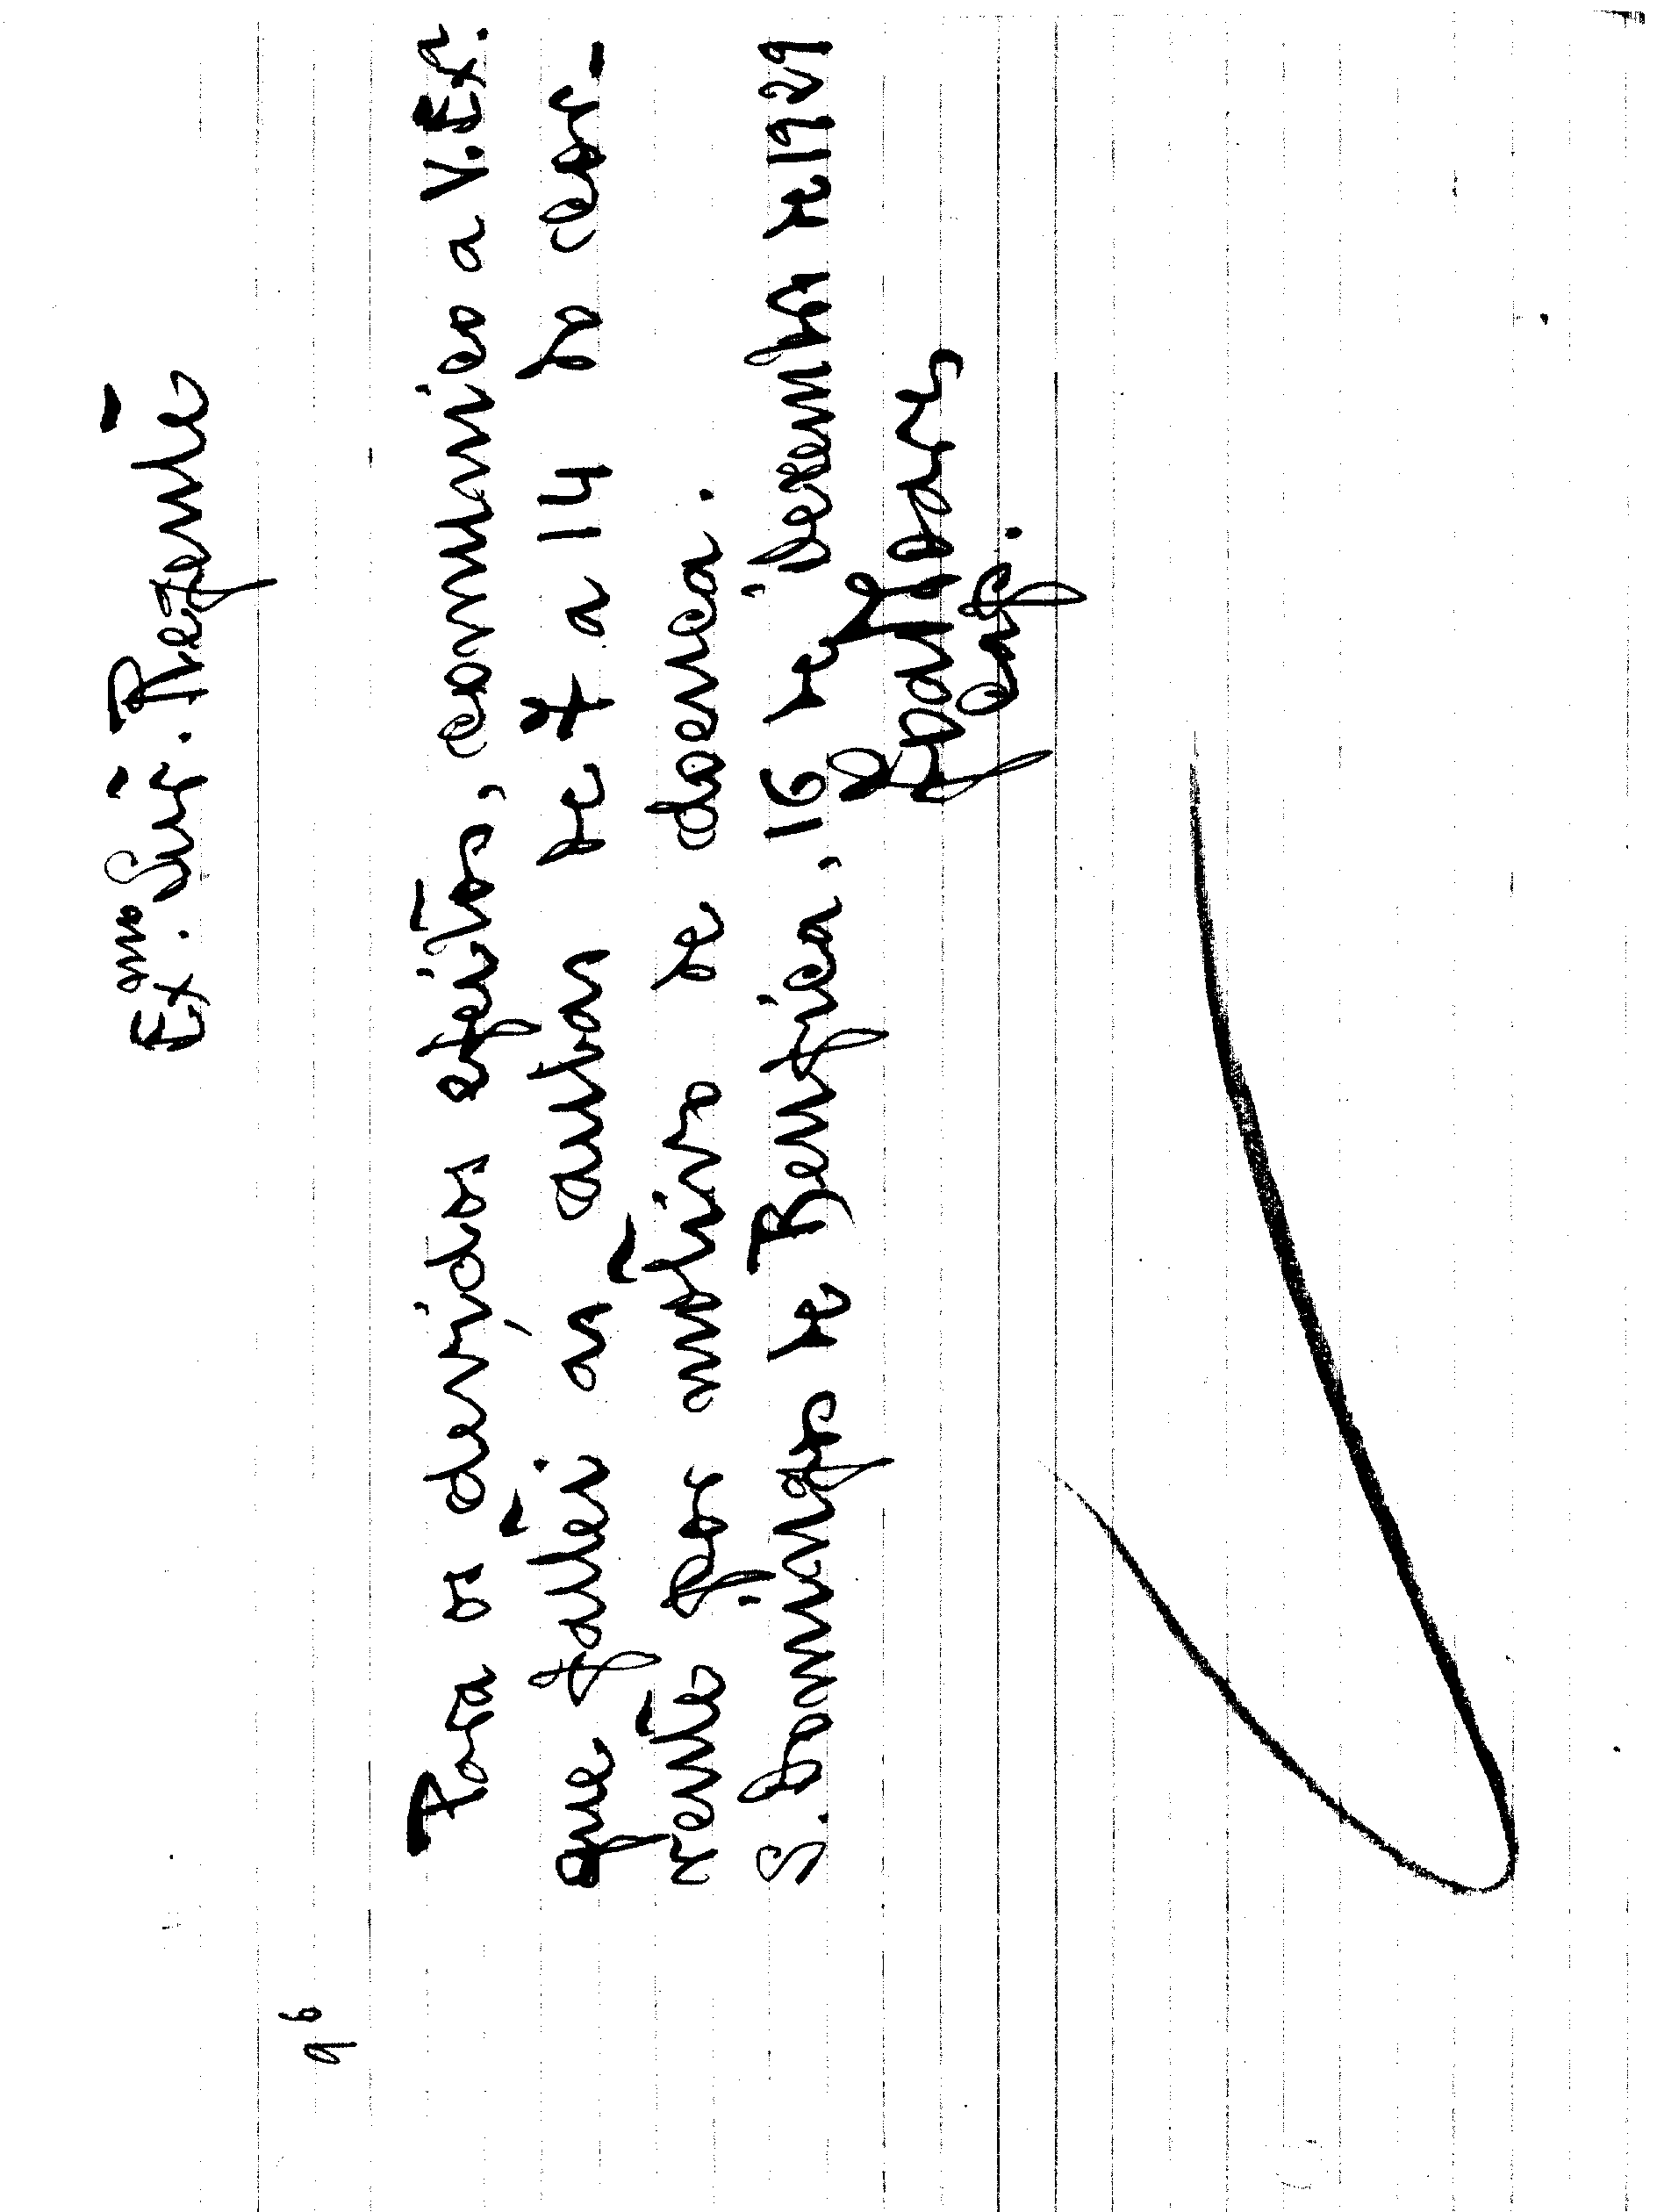 Ex.mo Snr. Regente
96
Para os devidos efeitos, comunico a V. Exª.
que faltei ás aulas de 7 a 14 do cor-
rente por motivo de doença.
S. Domingos de Benfica, 16 de Dezembro de 1929